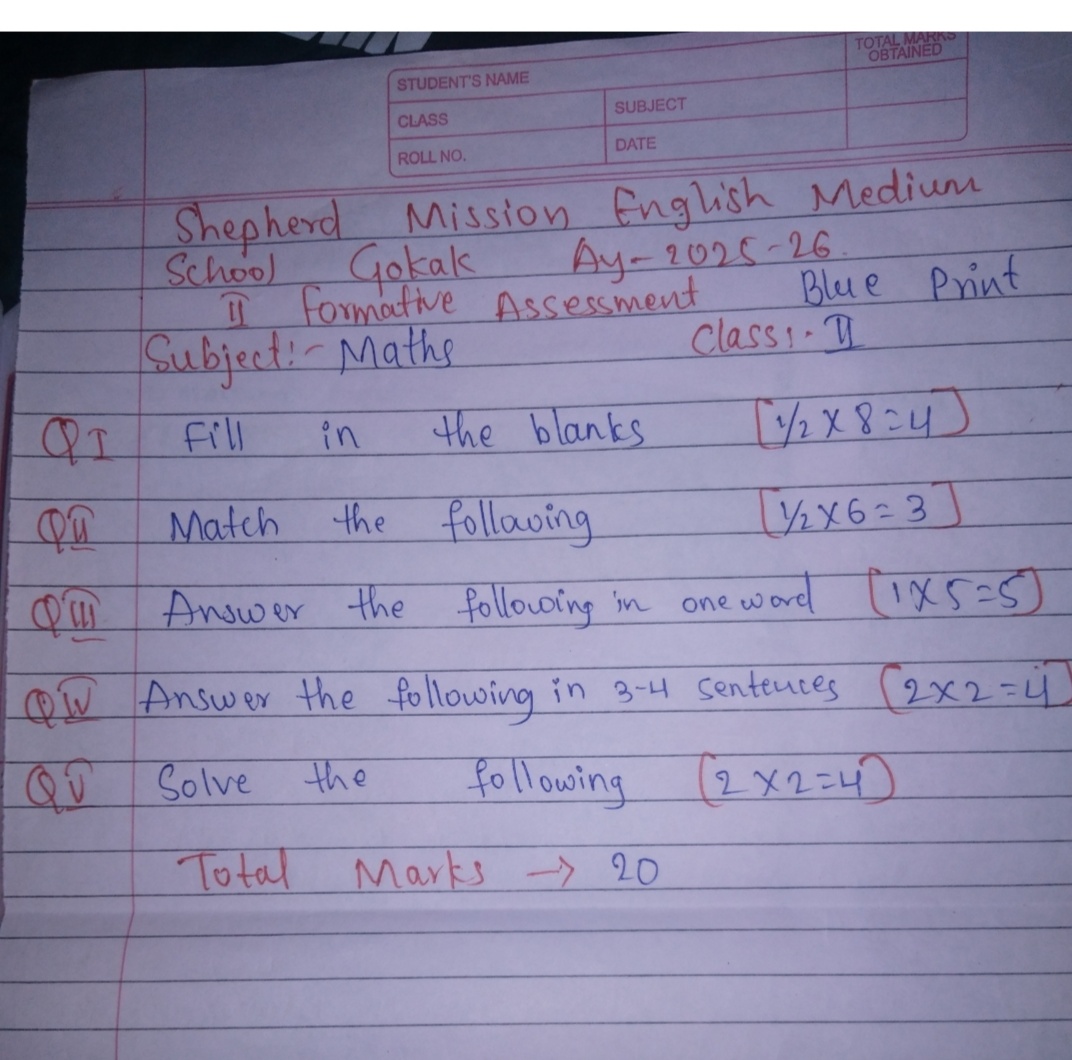 TOTAL MARKS
OBTAINED
STUDENT'S NAME
CLASS
SUBJECT
ROLL NO.
DATE
Shepherd Mission English Medium
School Gokak Ay-2025-26.
II Formative Assessment Blue Print
Subject:- Maths Class:- II
Q I Fill in the blanks [1/2 X 8=4]
Q II Match the following [1/2 X 6=3]
Q III Answer the following in one word [1X5=5]
Q IV Answer the following in 3-4 sentences (2x2=4]
Q V Solve the following (2 X 2=4)
Total Marks → 20